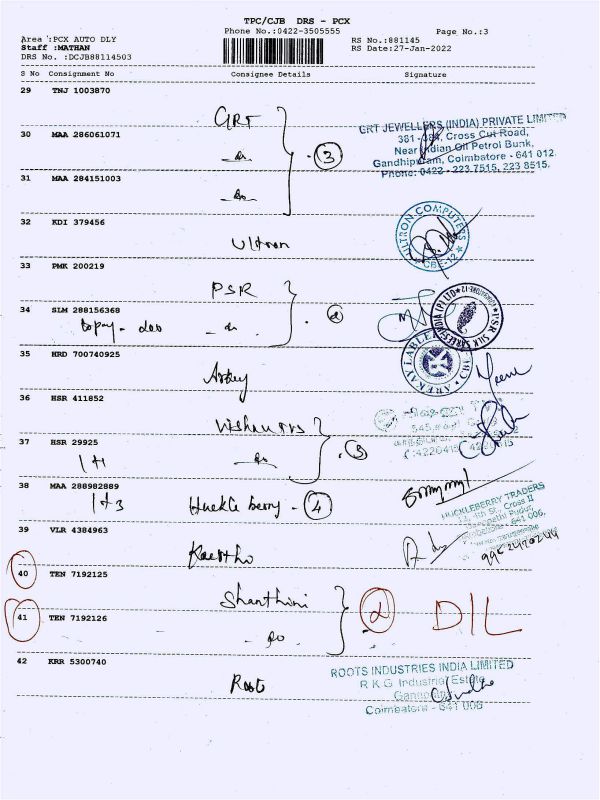 TPC/CJB DRS - PCX
Phone No.:0422-3505555
Page No.:3
Area :PCX AUTO DLY
RS No.:881145
Staff :MATHAN
RS Date:27-Jan-2022
DRS No. :DCJB88114503
S No Consignment No Consignee Details Signature
29 TNJ 1003870
GRT
GRT JEWELLERS (INDIA) PRIVATE LIMITED
Cross Cut Road,
30 MAA 286061071
- do -
3
Near Indian Oil Petrol Bunk,
Gandhipuram, Coimbatore - 641 012.
Phone: 0422 - 223 7515, 223 8515.
31 MAA 284151003
- do -
32 KDI 379456
Ultron
ULTRON COMPUTERS
CBE-12
33 PMK 200219
PSR
34 SLM 288156368
- do -
2
PSR SILK SAREES INDIA (P) LTD
35 HRD 700740925
36 HSR 411852
37 HSR 29925
1+1
- do -
3
38 MAA 288982889
1+3
Huckle berry - 4
HUCKLEBERRY TRADERS
39 VLR 4384963
40 TEN 7192125
Shanthini
41 TEN 7192126
- do -
2
DIL
42 KRR 5300740
Roots
ROOTS INDUSTRIES INDIA LIMITED
R K G Industrial Estate
Coimbatore - 641 006